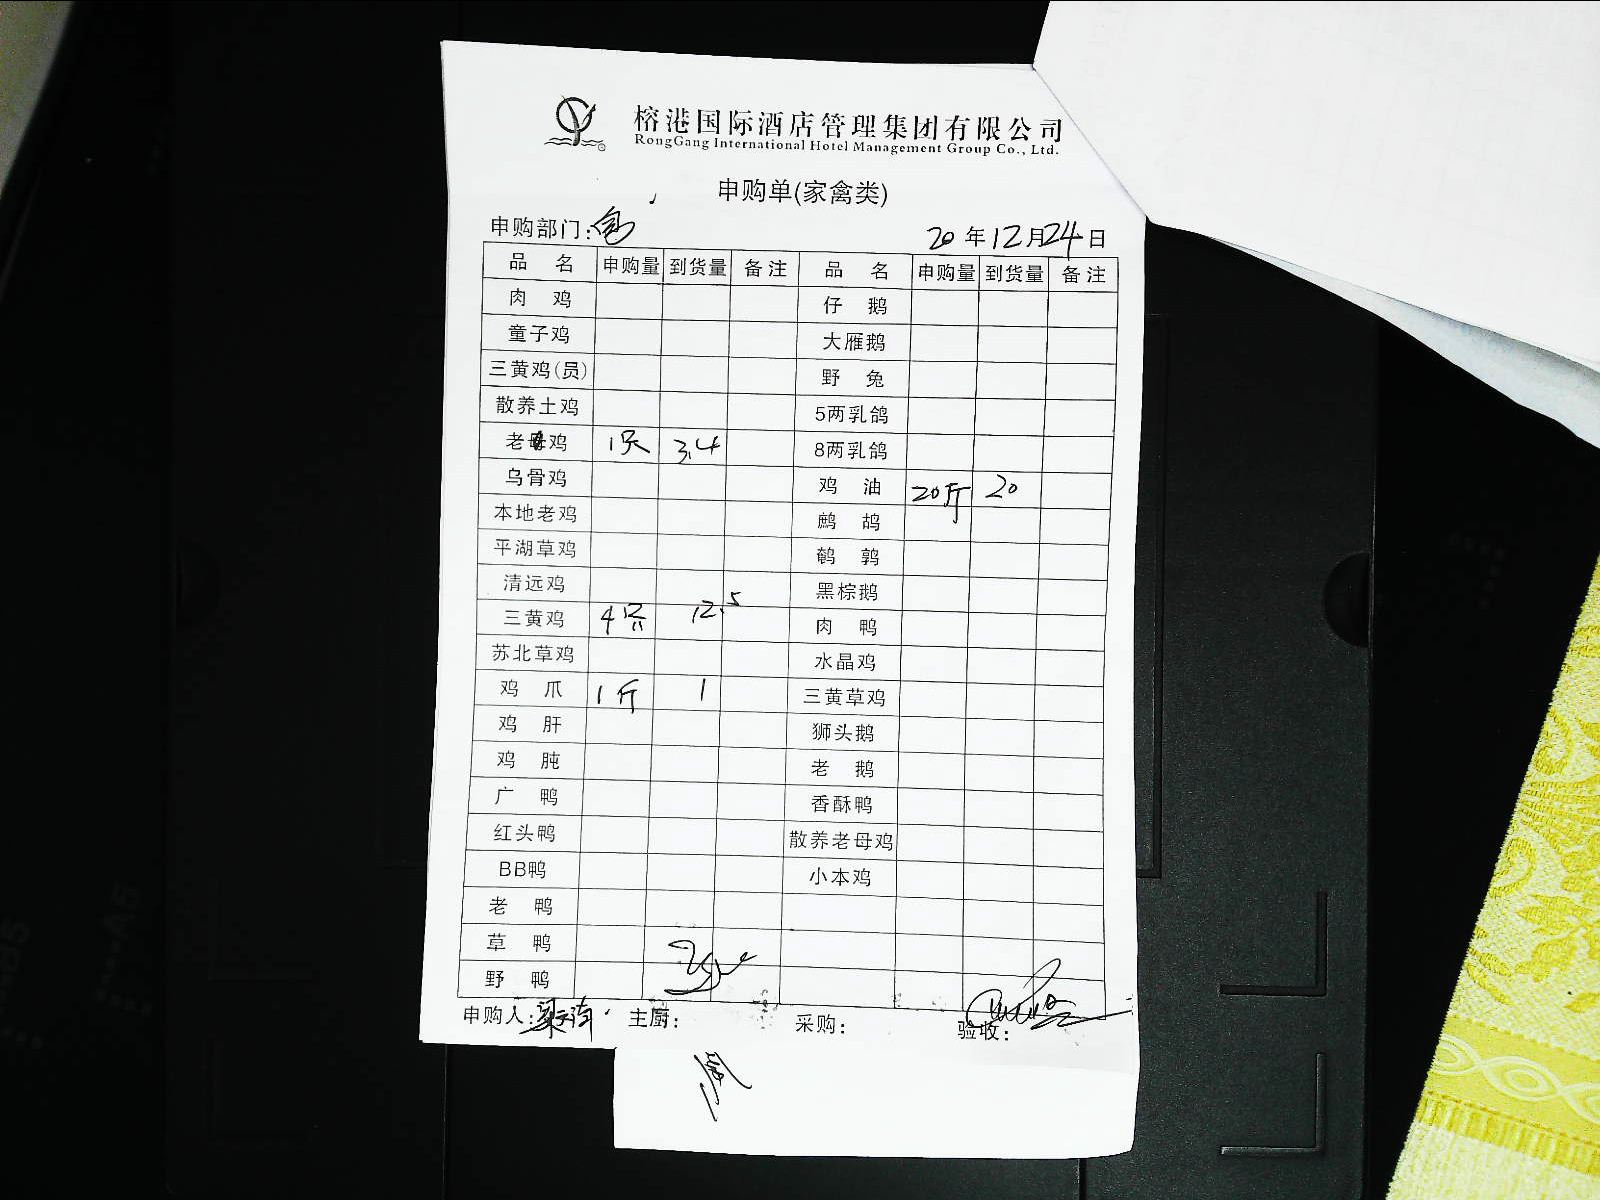 榕港国际酒店管理集团有限公司
RongGang International Hotel Management Group Co., Ltd.
申购单(家禽类)
申购部门:
20年12月24日
品名 申购量 到货量 备注 品名 申购量 到货量 备注
肉鸡 仔鹅
童子鸡 大雁鹅
三黄鸡(员) 野兔
散养土鸡 5两乳鸽
老母鸡 1只 3.4 8两乳鸽
乌骨鸡 鸡油 20斤 20
本地老鸡 鹧鸪
平湖草鸡 鹌鹑
清远鸡 黑棕鹅
三黄鸡 4只 12.5 肉鸭
苏北草鸡 水晶鸡
鸡爪 1斤 1 三黄草鸡
鸡肝 狮头鹅
鸡肫 老鹅
广鸭 香酥鸭
红头鸭 散养老母鸡
BB鸭 小本鸡
老鸭
草鸭
野鸭
申购人: 主厨: 采购: 验收: